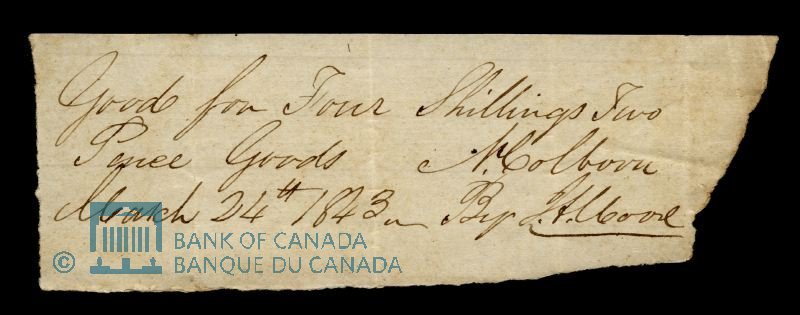 Good for Four Shillings Two
Pence Goods N. Colborn
March 24th 1843 By J.A. Moore
© BANK OF CANADA
BANQUE DU CANADA